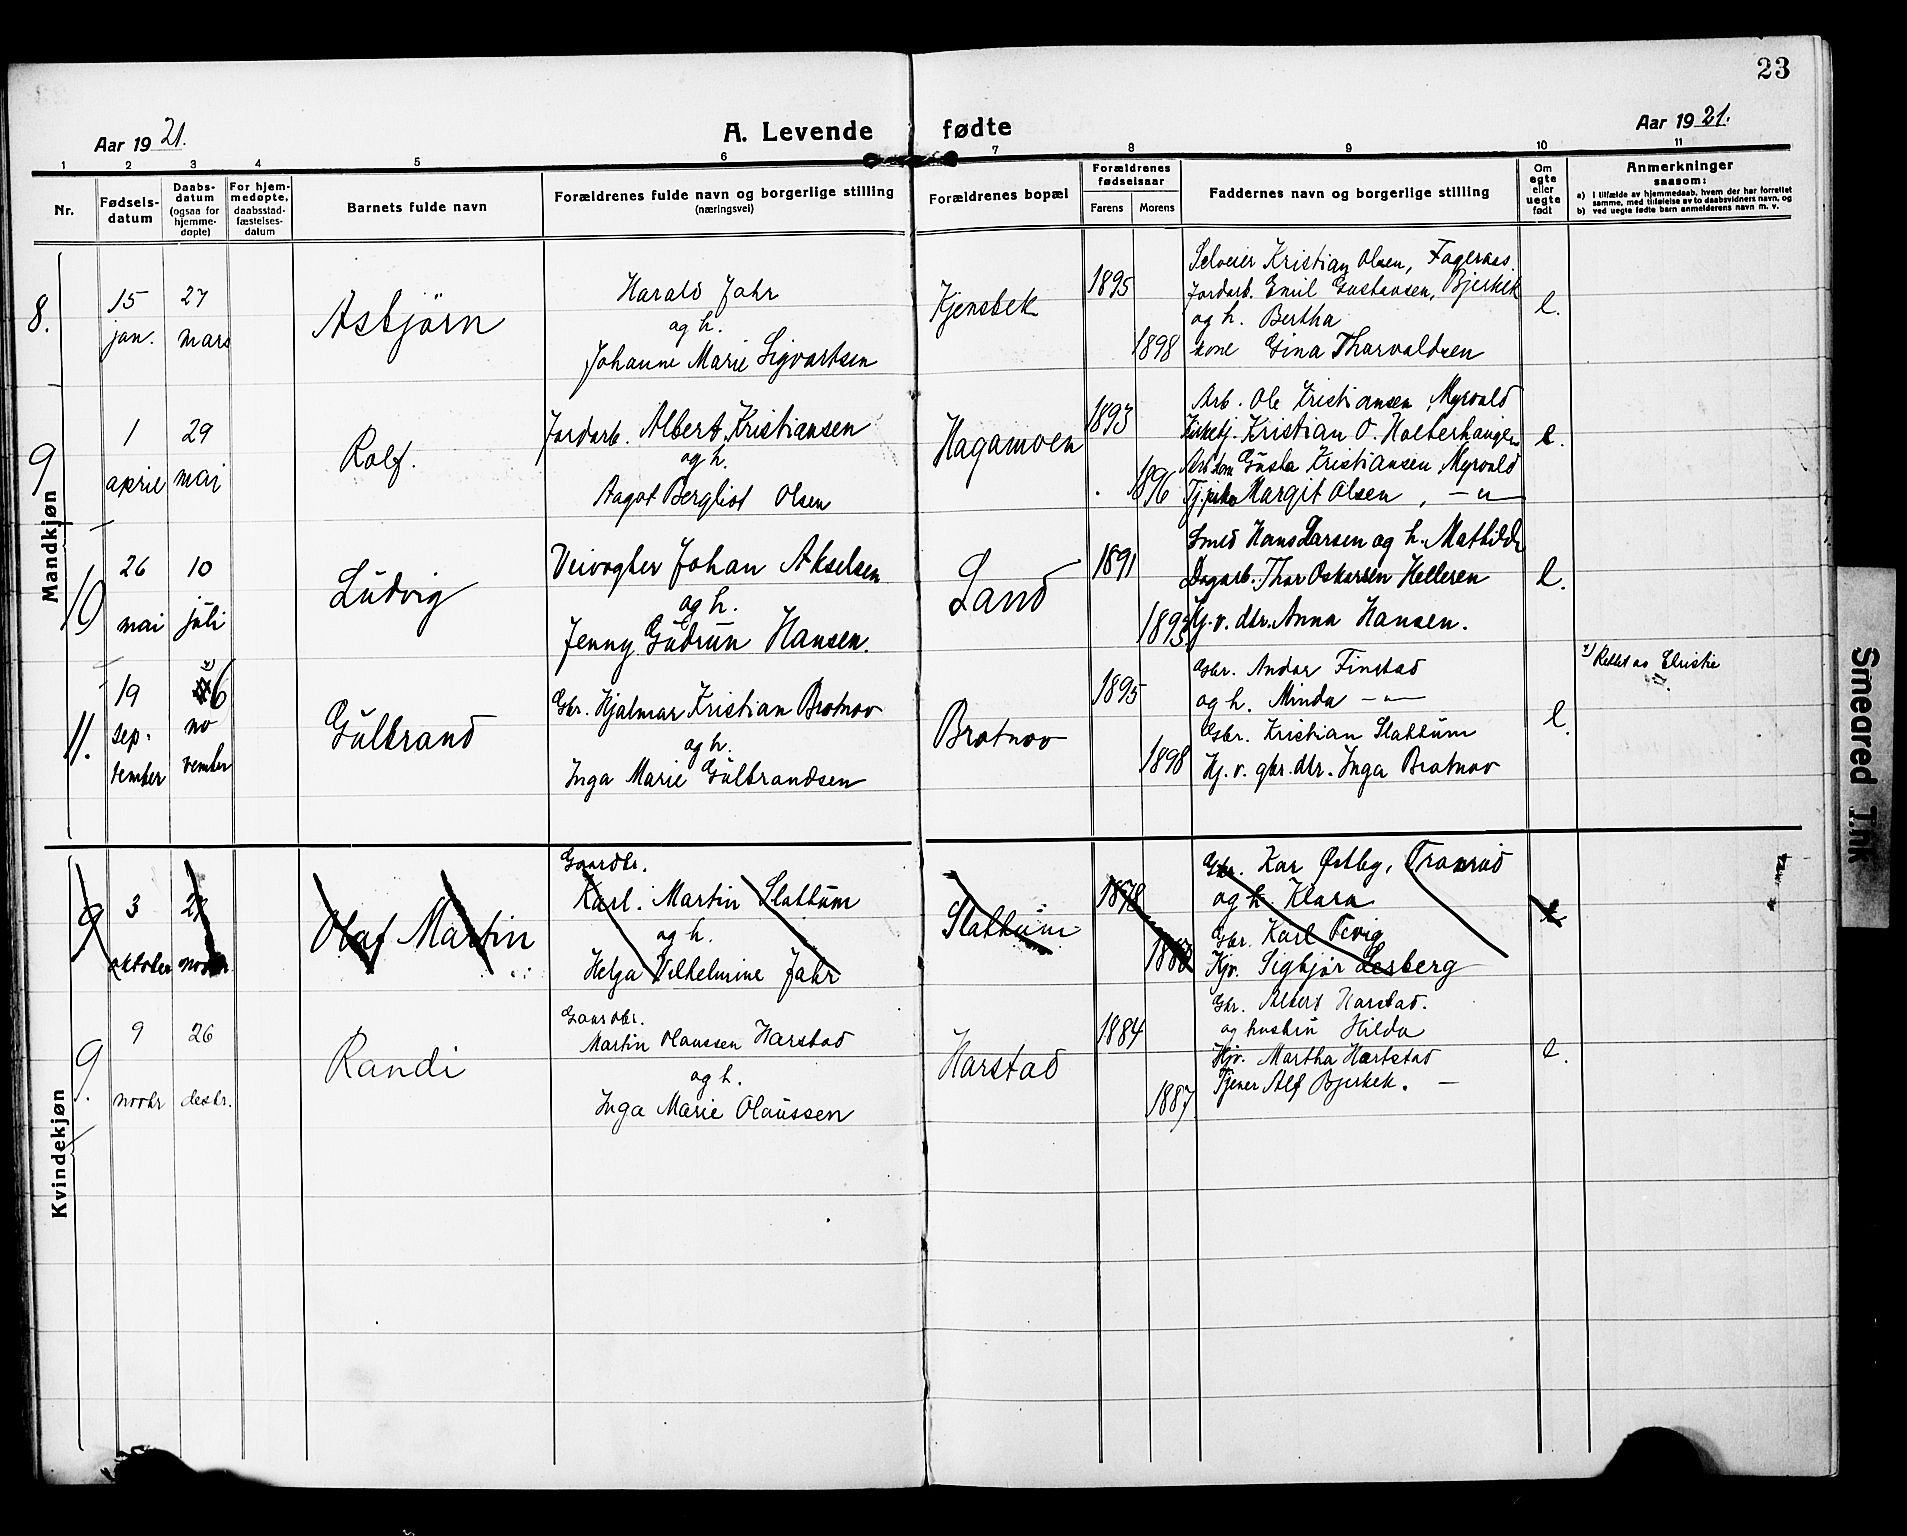 23
Aar 1921.
A. Levende fødte
Aar 1921.
1 2 3 4 5 6 7 8 9 10 11
Nr.
Fødsels-
datum
Daabs-
datum
(ogsaa for
hjemme-
døpte)
For hjem-
medøpte,
daabsstad-
fæstelses-
datum
Barnets fulde navn
Forældrenes fulde navn og borgerlige stilling
(næringsvei)
Forældrenes bopæl
Forældrenes
fødselsaar
Farens Morens
Faddernes navn og borgerlige stilling
Om
egte
eller
uegte
født
Anmerkninger
saasom:
a) I tilfælde av hjemmedaab, hvem der har forrettet
samme, med tilføielse av to daabsvidners navn, og
b) ved uegte fødte barn anmelderens navn m. v.
Mandkjøn
8.
15
jan.
27
mars
Asbjørn
Harald Jahr
og h.
Johanne Marie Sigvartsen
Kjensbek
1895
1898
Selveier Kristian Olsen, Fagernes
Jordarb. Emil Gustavsen, Bjerkek
og h. Bertha
kone Gina Thorvaldsen
e.
9
1
april
29
mai
Rolf.
Jordarb. Albert Kristiansen
og h.
Aagot Bergliot Olsen
Hagamoen
1893
1896
Arb. Ole Kristiansen, Myrvold
Kirketj. Kristian O. Holterhaugen
Gusta Kristiansen, Myrvold
Margit Olsen, — " —
e.
10
26
mai
10
juli
Ludvig
Veivogter Johan Akselsen
og h.
Jenny Gudrun Hansen.
Sand
1891
1893
Smed Hans Larsen og h. Mathilde
Dagarb. Thor Oskarsen Helleren
Hj. v. dtr. Anna Hansen.
e.
11.
19
sep-
tember
x)
6
no
vember
Gulbrand
Gbr. Hjalmar Kristian Bratnov
og h.
Inga Marie Gulbrandsen
Bratnov
1895
1898
Gbr. Andor Finstad
og h. Minda — " —
Gbr. Kristian Slattum
Hj. v. gbr. dtr. Inga Bratnov
e.
x) Rettet av Christie
Kvindekjøn
9
3
oktober
27
novbr.
Olaf Martin
Gaardbr.
Karl Martin Slattum
og h.
Helga Vilhelmine Jahr
Slattum
1878
Gbr. Kar Østby, Tranrud
og h. Klara
Gbr. Karl Tevig
Hjv. Sigbjør Lesberg
e
9.
9
novbr
26
desbr.
Randi
Gaardbr.
Martin Olaussen Harstad
og h.
Inga Marie Olaussen
Harstad
1884
1887
Gbr. Albert Harstad.
og hustru Hilda
Hjv. Martha Hartstad
Tjener Alf Bjerkek. —
e.
Smeared Ink